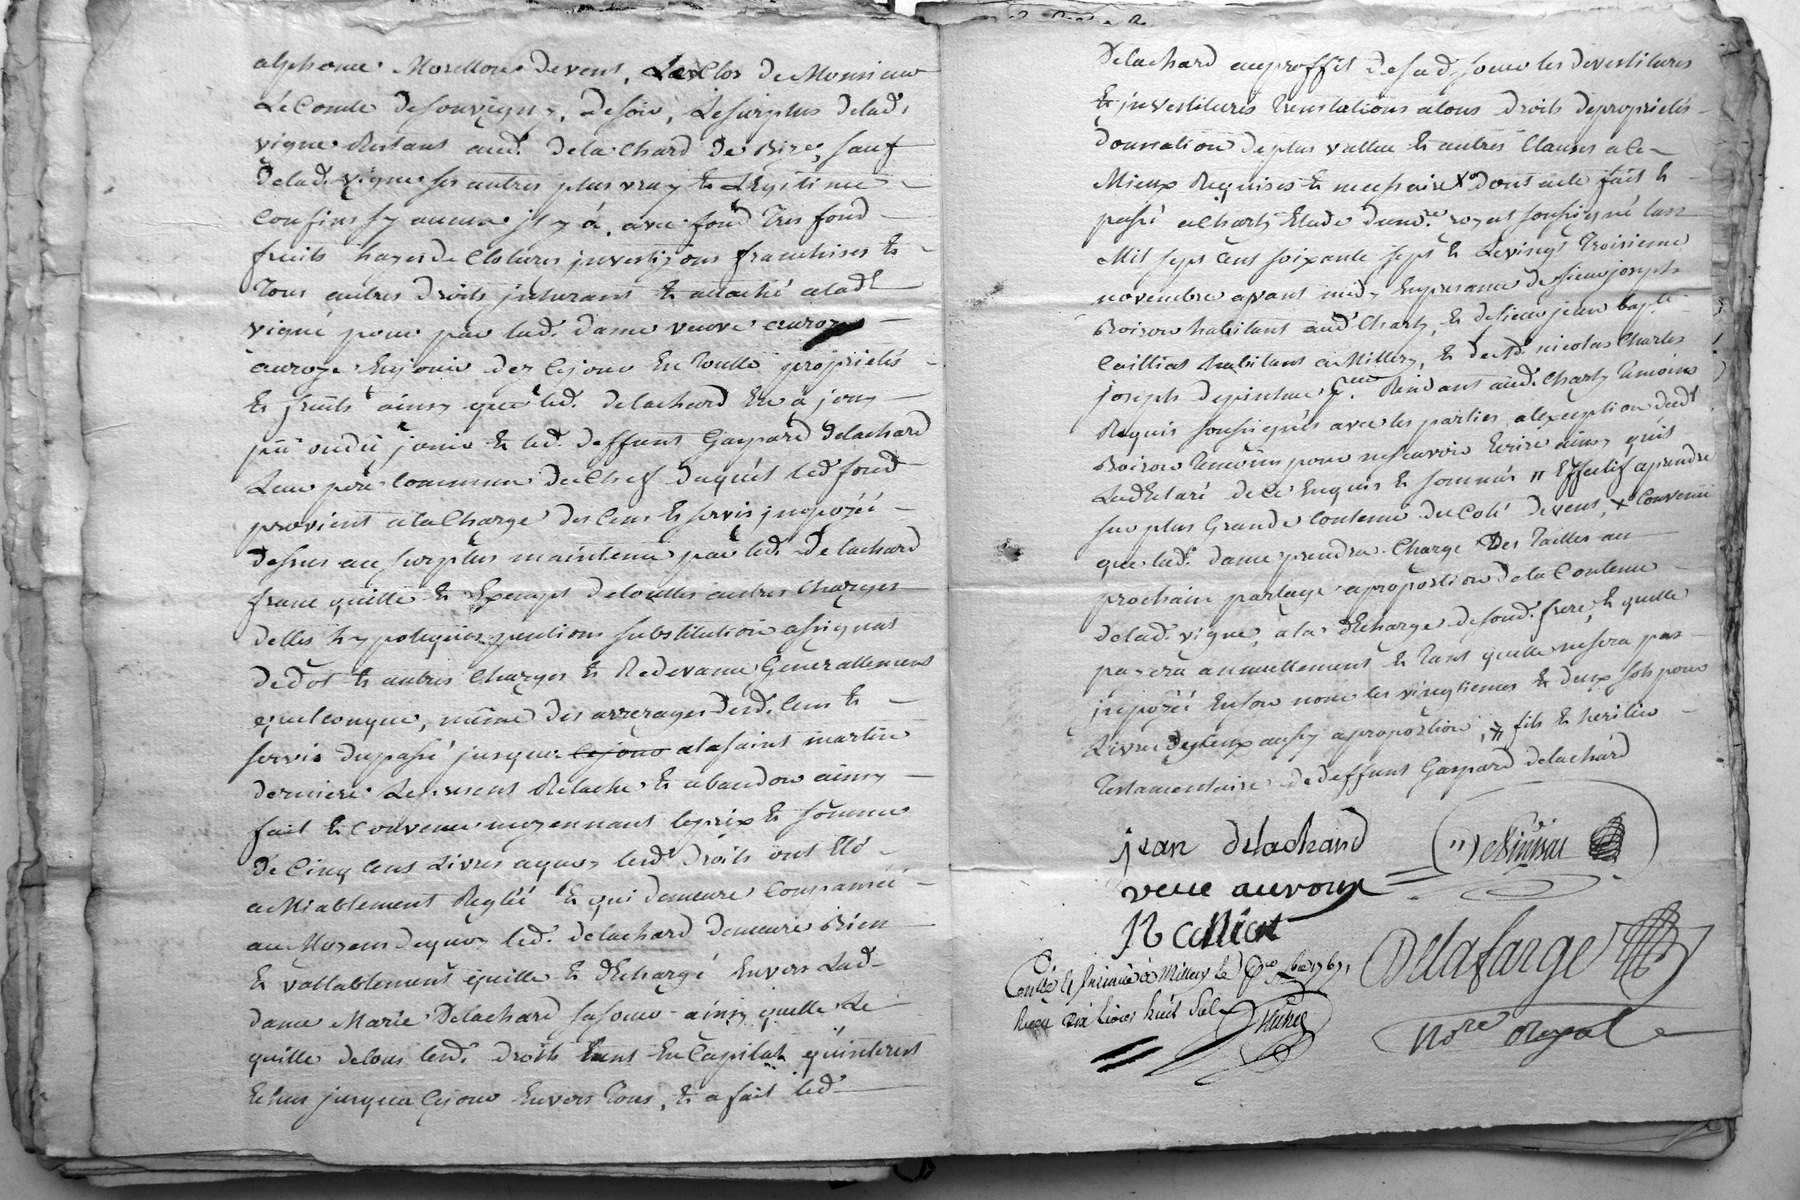 alphonse Morellon de vent, Le Clos de Monsieur
Le Comte de souvigny, de soir, Le surplus de lad.
vigne Restant aud. delachard de Bize, sauf
delad. vigne ses autres plus vray & Légitime
Confins sy aucun il y à, avec fond Tres fond
fruits hayes de Clotures investizons franchises &
Tous autres droits jnherans & attaché a lad.
vigne pour par lad. dame veuve
auroze En jouir dez Cejour En Toutte proprietés
& fruits ainsy que led. delachard En à jouy
pû ou dû jouir & led. deffunt Gaspard delachard
Leur pere Commun du Chef duquel led. fond
provient a la Charge des Cens & servis jmpozéé
dessus au surplus maintenu par led. delachard
franc quitte & Exempt de touttes autres Charges
dettes hypoteques pentions substitution assignat
de dot & autres Charges & Redevance Generallement
quelconque, même des arrerages desd. Cens &
servis du passé jusque cejour a la saint martin
derniere Le present Relache & abandon ainsy
fait & Convenu moyennant le prix & somme
de Cinq Cens Livres a quoy lesd. droits ont été
amiablement Reglée & qui demeure Compansée
au Moyens de quoy led. delachard demeure Bien
& vallablement quitte & dechargé Envers Lad.
dame Marie Delachard sa soeur ainsy quelle Le
quitte de tous lesd. droits tant En Capital qu'interest
Echus jusqua Cejour Envers Tous, & a fait led.
delachard au proffit de sad. soeur les devestitures
& jnvestitures Translations a tous droits de proprietés
donnation de plus vallue & autres Clauses a ce
Mieux Requises & necessaire dont acte fait &
passé a Charly Etude du no.re royal soussigné Lan
Mil sept Cens soixante sept & Le vingt Troisieme
novembre avant midy En presence de sieur joseph
Boiron habitant aud. Charly, & de sieur jean bapt.
Caillias habitant a Millery, & de Sr. nicolas Charles
joseph depinture Residant aud. Charly Temoins
Requis soussignés avec les parties a l'exception dud.
Boiron Temoins pour ne scavoir Ecrire ainsy qu'il
La declaré de Ce Enquis & sommés " Effectif a prendre
sur plus Grande Contenue du Coté de vent, x Convenu
que lad. dame prendra Charge des Tailles au
prochain partage a proportion de la Contenue
de lad. vigne, a la decharge de sond. frere, & quelle
payera annuellement & Tant quelle ne sera pas
jmpozéé En son nom les vingtiemes & deux sols pour
Livre d'iceux aussy a proportion, fils & heritier
Testamentaire de deffunt Gaspard delachard
jean delachard
veue auroze
Delafarge
No.re Royal